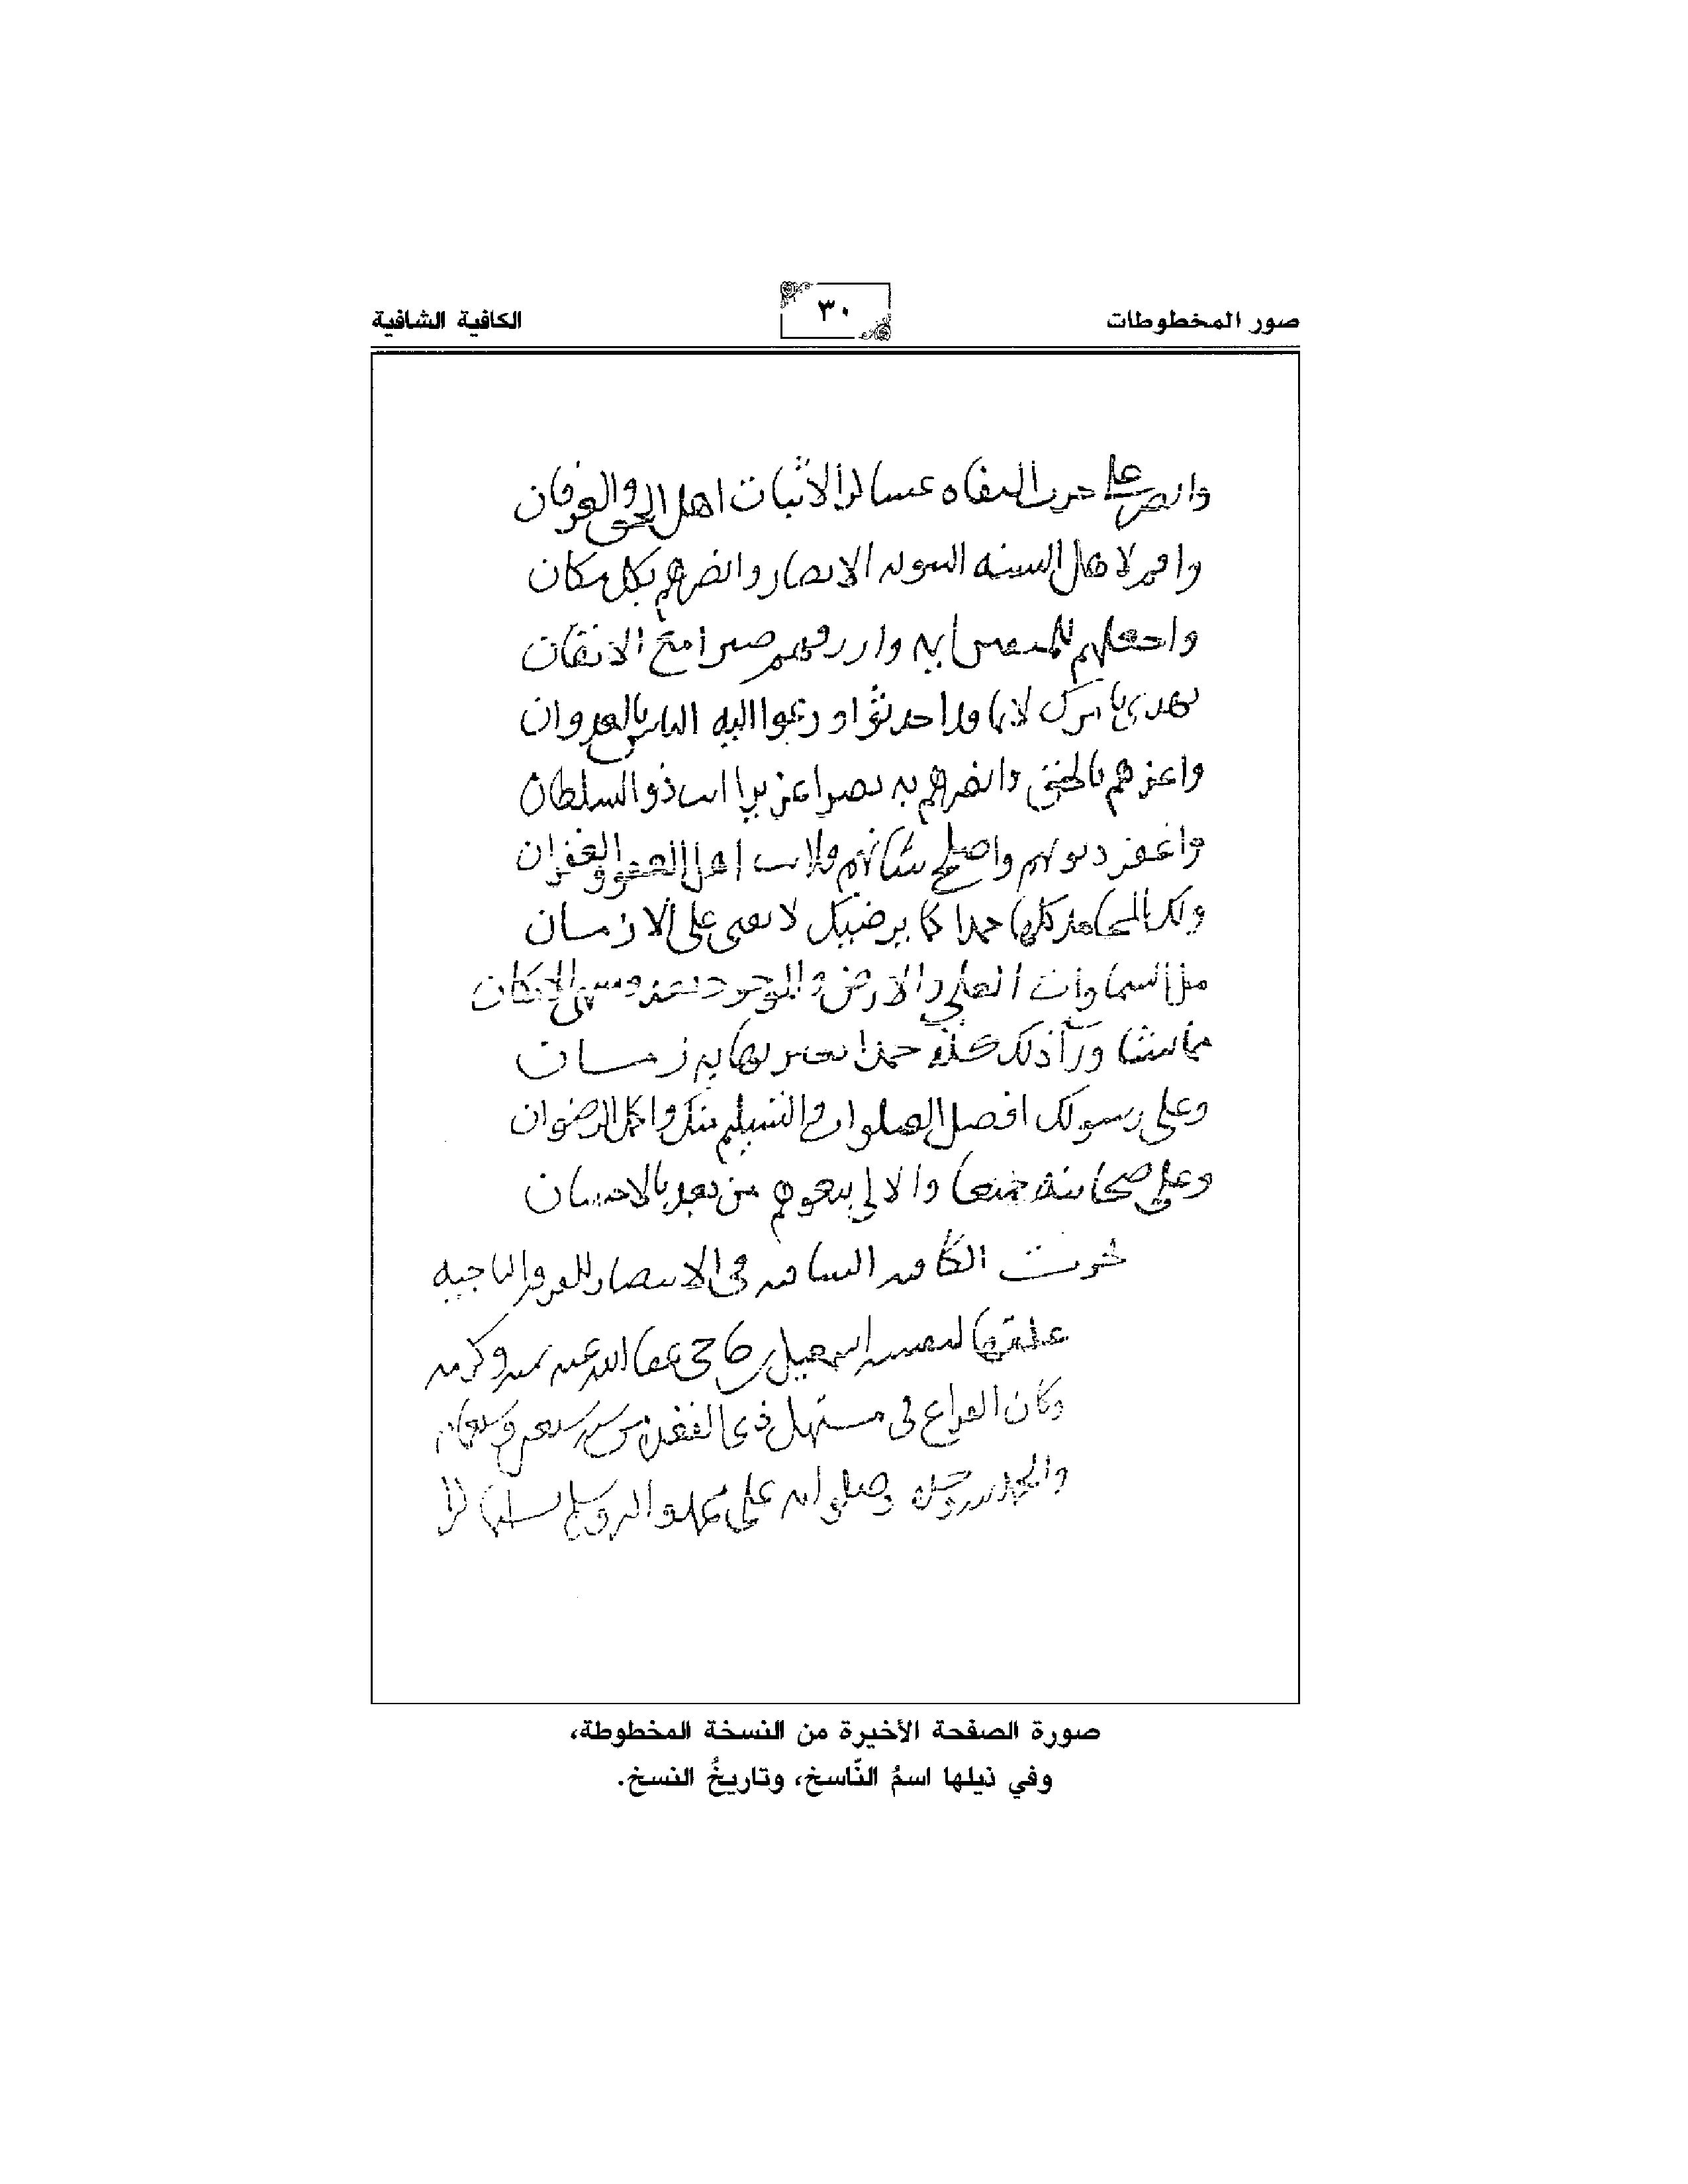 صور المخطوطات
٣٠
الكافية الشافية
وانصر على حزب النفاه عساكر الاثبات اهل الحق والعرفان
واقم لاهل السنه النبويه الانصار وانصرهم بكل مكان
واجعلهم للمتقين ايمه وارزقهم صبرا مع الايقان
تهدي بامرك لا بما قد احدثوا ودعوا اليه الناس بالعدوان
واعزهم بالحق وانصرهم به نصرا عزيزا انت ذو السلطان
واغفر ذنوبهم واصلح شانهم فلانت اهل العفو والغفران
ولك المحامد كلها حمدا كما يرضيك لا يفنى على الازمان
مل السماوات العلى والارض والموجود بعد ومنتهى الامكان
مما تشا ورآ ذلك كله حمدا بغير نهايه زمان
وعلى رسولك افضل الصلوات والتسليم منك واكمل الرضوان
وعلى صحابته جميعا والالى تبعوهم من بعد بالاحسان
نجزت الكافيه الشافيه في الانتصار للفرقه الناجيه
علقها لنفسه اسمعيل بن حاجي عفا الله عنه بمنه وكرمه
وكان الفراغ في مستهل ذي القعده من سنه
والحمد لله وحده وصلواته على محمد واله وسلم تسليما
صورة الصفحة الأخيرة من النسخة المخطوطة،
وفي ذيلها اسمُ النّاسخ، وتاريخُ النسخ.